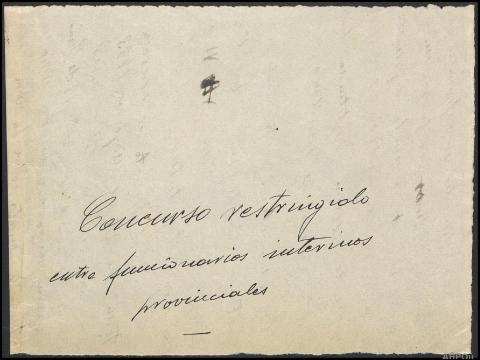 Concurso restringido
entre funcionarios interinos
provinciales